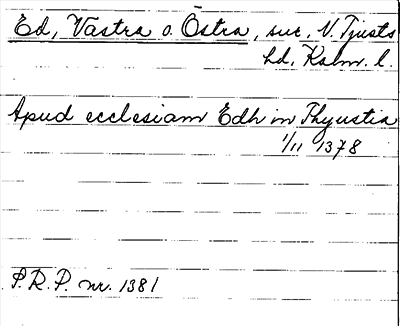 Ed, Västra o. Östra, snr, N. Tjusts
hd, Kalm. l.
Apud ecclesiam Edh in Thyustia
1/11 1378
S.R.P. nr. 1381